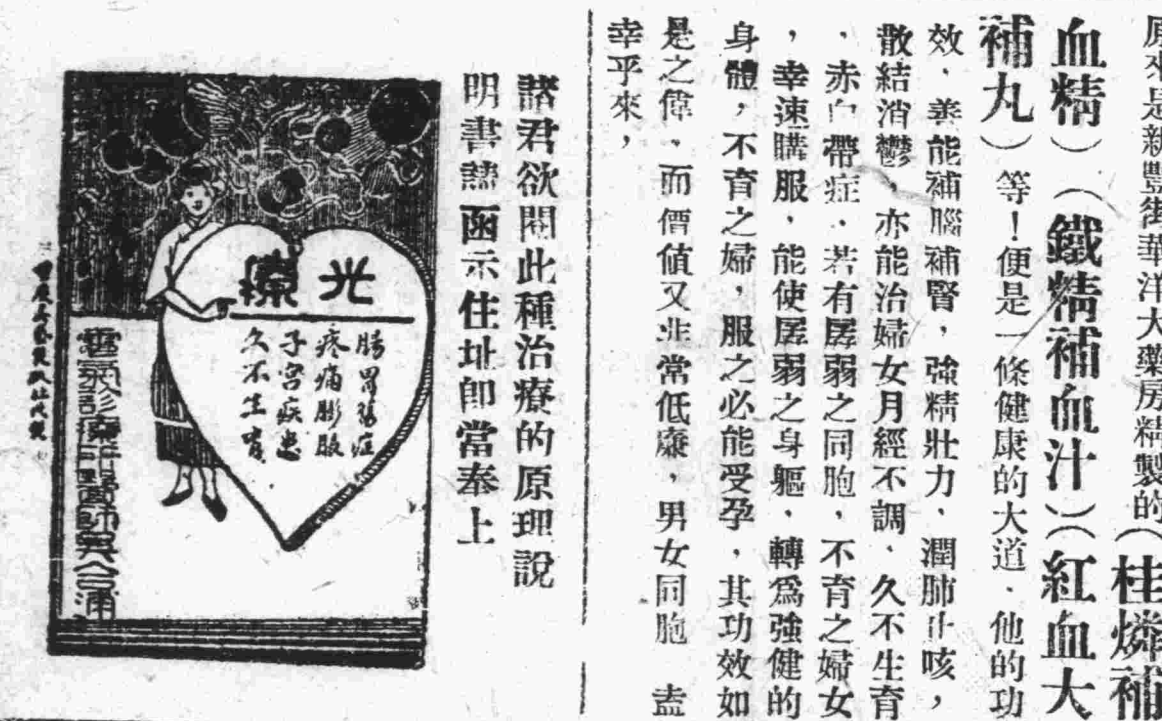 原來是新豐街華洋大藥房精製的(桂燐補
血精)(鐵精補血汁)(紅血大
補丸)等!便是一條健康的大道．他的功
效．善能補腦補腎，強精壯力．潤肺止咳，
散結消鬱，亦能治婦女月經不調．久不生育
．赤白帶症．若有孱弱之同胞．不育之婦女
，幸速購服，能使孱弱之身軀．轉爲強健的
身體，不育之婦，服之必能受孕，其功效如
是之偉．而價值又非常低廉，男女同胞　盍
幸乎來，
諸君欲閱此種治療的原理說
明書請函示住址即當奉上
光療
腸胃
疼痛膨脹
子宮疾患
久不生育
電氣診療所醫師吳